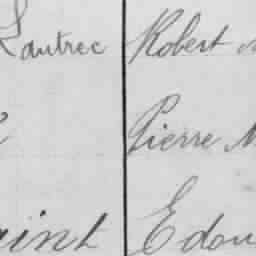 Lautrec Robert
Pierre M
aint Edou